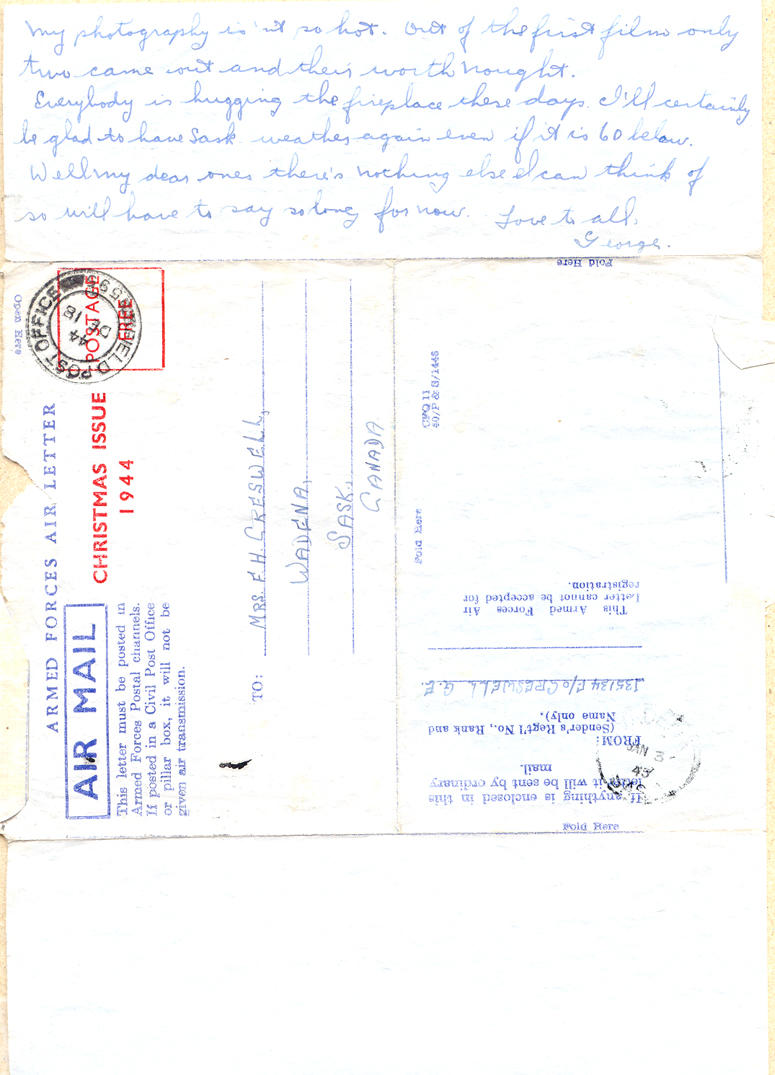 My photography is'nt so hot. Out of the first film only
two came out and their worth nought.
Everybody is hugging the fireplace these days. I'll certainly
be glad to have Sask weather again even if it is 60 below.
Well my dear ones there's nothing else I can think of
so will have to say so long for now. Love to all.
George.
Fold Here
Open Here
FIELD POST OFFICE
DE 18
44
POSTAGE
FREE
ARMED FORCES AIR LETTER
CHRISTMAS ISSUE
1944
AIR MAIL
This letter must be posted in
Armed Forces Postal channels.
If posted in a Civil Post Office
or pillar box, it will not be
given air transmission.
TO:
MRS. F. H. CRESWELL,
WADENA,
SASK.,
CANADA
Fold Here
If anything is enclosed in this
letter it will be sent by ordinary
mail.
FROM:
(Sender's Regt'l No., Rank and
Name only).
J35134 F/O CRESWELL G.E.
This Armed Forces Air
Letter cannot be accepted for
registration.
Fold Here
JAN 3
45